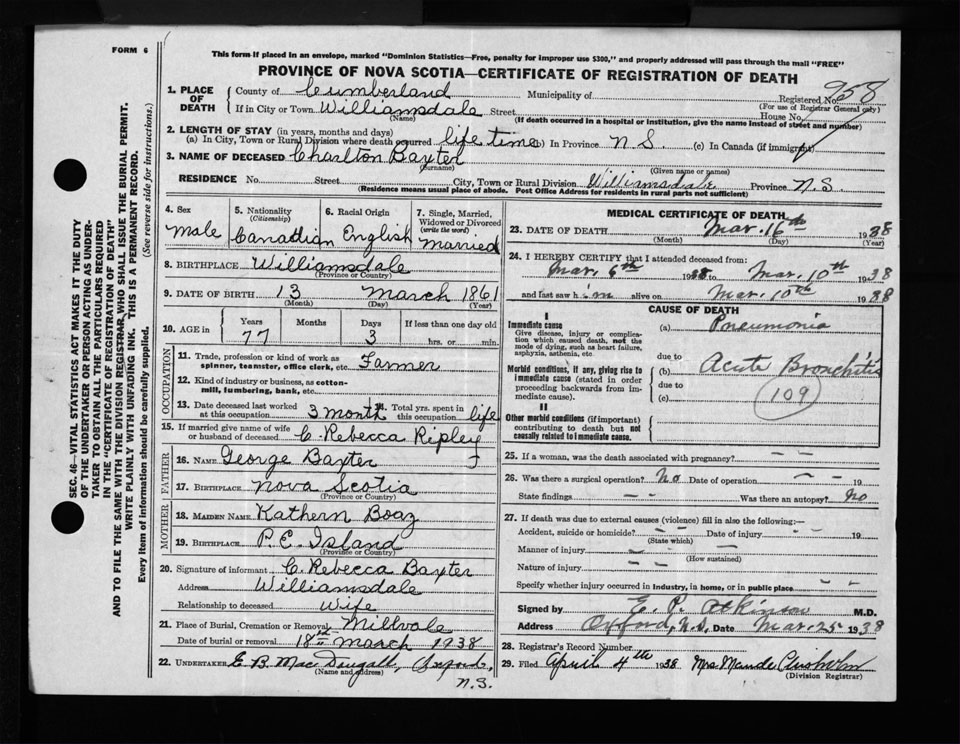 FORM 6
This form if placed in an envelope, marked "Dominion Statistics—Free, penalty for improper use $300," and properly addressed will pass through the mail "FREE"
PROVINCE OF NOVA SCOTIA—CERTIFICATE OF REGISTRATION OF DEATH
1. PLACE OF DEATH County of Cumberland Municipality of Registered No. 958
(For use of Registrar General only)
If in City or Town Williamsdale Street House No.
(Name) (If death occurred in a hospital or institution, give the name instead of street and number)
2. LENGTH OF STAY (in years, months and days)
(a) In City, Town or Rural Division where death occurred life time (b) In Province N.S. (c) In Canada (if immigrant)
3. NAME OF DECEASED Charlton Baxter
(Surname) (Given name or names)
RESIDENCE No. Street City, Town or Rural Division Williamsdale Province N.S
(Residence means usual place of abode. Post Office Address for residents in rural parts not sufficient)
4. Sex Male
5. Nationality (Citizenship) Canadian
6. Racial Origin English
7. Single, Married, Widowed or Divorced (write the word) Married
8. BIRTHPLACE Williamsdale
(Province or Country)
9. DATE OF BIRTH 13 March 1861
(Month) (Day) (Year)
10. AGE in Years Months Days If less than one day old
77 3 hrs. or min.
OCCUPATION
11. Trade, profession or kind of work as spinner, teamster, office clerk, etc. Farmer
12. Kind of industry or business, as cotton-mill, lumbering, bank, etc.
13. Date deceased last worked at this occupation 3 month 14. Total yrs. spent in this occupation life
15. If married give name of wife or husband of deceased C. Rebecca Ripley
FATHER
16. NAME George Baxter
17. BIRTHPLACE Nova Scotia
(Province or Country)
MOTHER
18. MAIDEN NAME Kathern Boaz
19. BIRTHPLACE P.E. Island
(Province or Country)
20. Signature of informant C. Rebecca Baxter
Address Williamsdale
Relationship to deceased Wife
21. Place of Burial, Cremation or Removal Millvale
Date of burial or removal 18th March 1938
22. UNDERTAKER E. B. Mac Dougall, Oxford, N.S.
(Name and address)
MEDICAL CERTIFICATE OF DEATH
23. DATE OF DEATH Mar. 16th 1938
(Month) (Day) (Year)
24. I HEREBY CERTIFY that I attended deceased from:
Mar. 6th 1938 to Mar. 10th 1938
and last saw him alive on Mar. 10th 1938
CAUSE OF DEATH
I
Immediate cause
Give disease, injury or complication which caused death, not the mode of dying, such as heart failure, asphyxia, asthenia, etc.
(a) Pneumonia
due to
Morbid conditions, if any, giving rise to immediate cause (stated in order proceeding backwards from immediate cause).
(b) Acute Bronchitis
due to
(c) 109
II
Other morbid conditions (if important) contributing to death but not causally related to immediate cause.
25. If a woman, was the death associated with pregnancy? – –
26. Was there a surgical operation? No Date of operation – – 19
State findings – – Was there an autopsy? No
27. If death was due to external causes (violence) fill in also the following:—
Accident, suicide or homicide? – – Date of injury – – 19
(State which)
Manner of injury – –
(How sustained)
Nature of injury – –
Specify whether injury occurred in industry, in home, or in public place – –
Signed by E. P. Atkinson M.D.
Address Oxford, N.S. Date Mar. 25 1938
28. Registrar's Record Number
29. Filed April 4th 1938 Mrs Maude Chisholm
(Division Registrar)
SEC. 46—VITAL STATISTICS ACT MAKES IT THE DUTY
OF THE UNDERTAKER OR PERSON ACTING AS UNDER-
TAKER TO OBTAIN ALL THE PARTICULARS REQUIRED
IN THE "CERTIFICATE OF REGISTRATION OF DEATH"
AND TO FILE THE SAME WITH THE DIVISION REGISTRAR, WHO SHALL ISSUE THE BURIAL PERMIT.
WRITE PLAINLY WITH UNFADING INK. THIS IS A PERMANENT RECORD.
Every item of information should be carefully supplied. (See reverse side for instructions.)